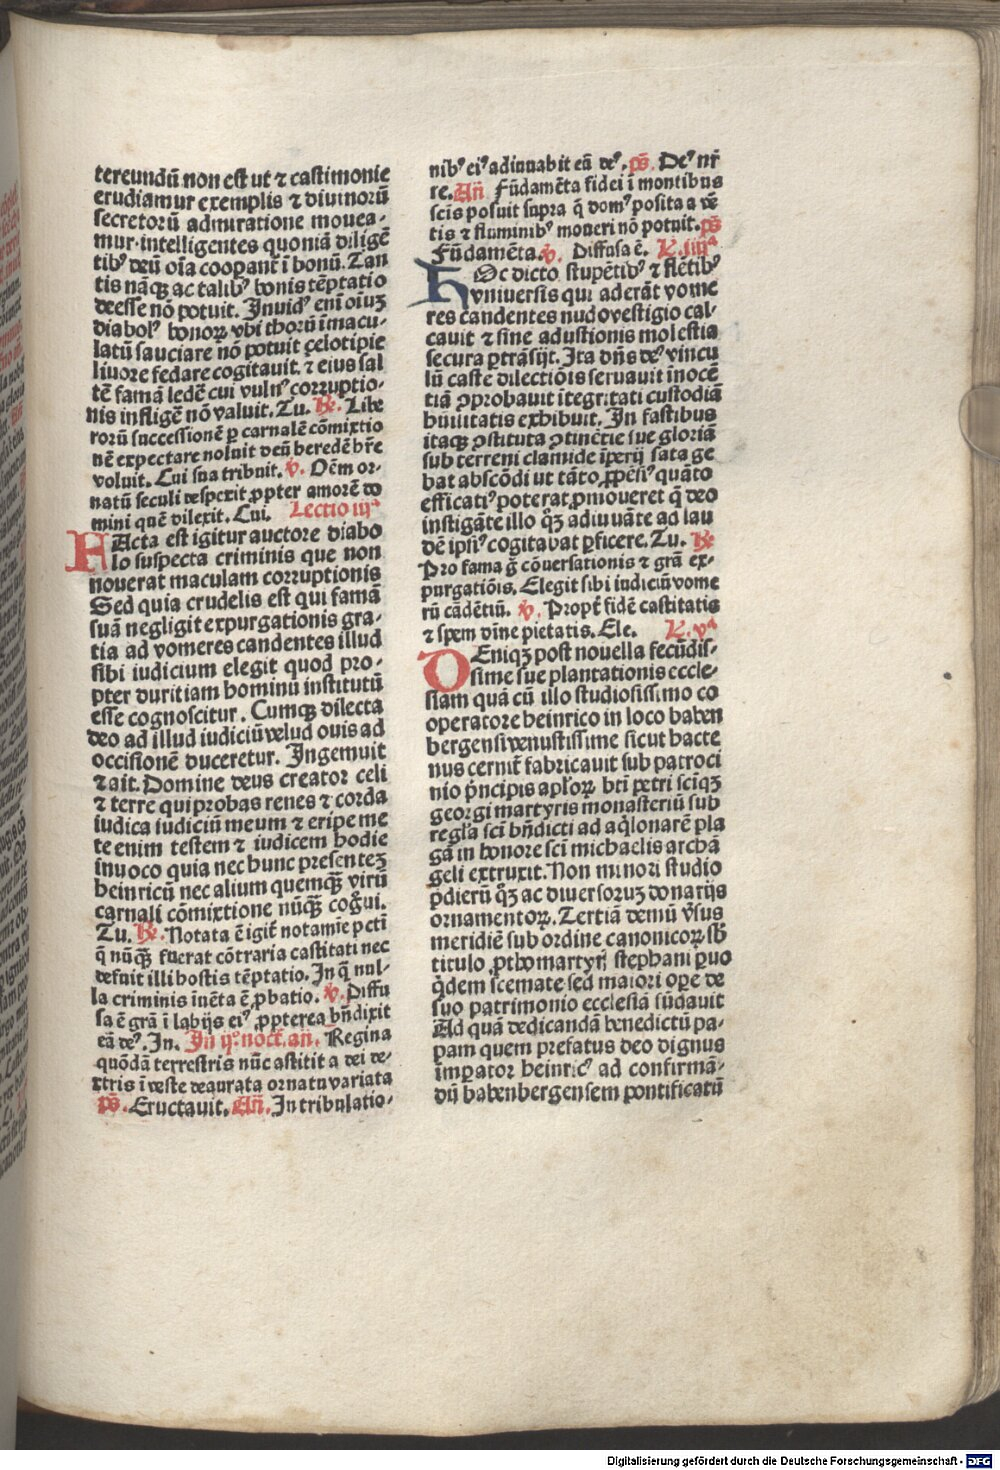 tereundū non est ut ⁊ castimonie
erudiamur exemplis ⁊ diuinorū
secretorū admiratione mouea-
mur·intelligentes quoniā diligē
tibꝰ deū oīa cooperant̄ ī bonū. Tan
tis nāqꝫ ac talibꝰ bonis tēptatio
deesse nō potuit. Inuidꝰ enī oīuꝫ
diabolꝰ bonoꝝ vbi thorū īmacu-
latū sauciare nō potuit çelotipie
liuore fedare cogitauit. ⁊ eius sal
tē famā ledē cui vulnꝰ corruptio-
nis infligē nō valuit. Tu. ℟. Libe
rorū successionē ꝑ carnalē cōmixtio
nē expectare noluit deū heredē hr̄e
voluit. Cui sua tribuit. ℣. Oēm or-
natū seculi despexit ꝓpter amorē do
mini quē dilexit. Cui. Lectio iijᵃ
FActa est igitur auctore diabo
lo suspecta criminis que non
nouerat maculam corruptionis
Sed quia crudelis est qui famā
suā negligit expurgationis gra-
tia ad vomeres candentes illud
sibi iudicium elegit quod pro-
pter duritiam hominū institutū
esse cognoscitur. Cumqꝫ dilecta
deo ad illud iudiciū velud ouis ad
occisionē duceretur. Ingemuit
⁊ ait. Domine deus creator celi
⁊ terre qui probas renes ⁊ corda
iudica iudiciū meum ⁊ eripe me
te enim testem ⁊ iudicem hodie
inuoco quia nec hunc presentez
heinricū nec alium quemqꝫ virū
carnali cōmixtione nūqꝫ coḡui.
Tu. ℟. Notata ē igit̄ notamīe pctī
q̄ nūqꝫ fuerat cōtraria castitati nec
defuit illi hostis tēptatio. In q̄ nul-
la criminis inuēta ē ꝓbatio. ℣. Diffu
sa ē grā ī labijs eiꝰ ꝓpterea bn̄dixit
eā deꝰ. In. In ijº. noct̄. an̄. Regina
quōdā terrestris nūc astitit a dei de-
xtris ī veste deaurata ornatu variata
ps̄. Eructauit. An̄. In tribulatio-
nibꝰ eiꝰ adiuuabit eā deꝰ. ps̄. Deꝰ nr̄
re. An̄ Fūdamēta fidei ī montibus
scīs posuit supra q̄ domꝰ posita a vē
tis ⁊ fluminibꝰ moueri nō potuit. ps̄
Fūdamēta. ℣. Diffusa ē. L. iiijᵃ
HOc dicto stupētibꝰ ⁊ flētibꝰ
vniuersis qui aderāt vome
res candentes nudo vestigio cal-
cauit ⁊ sine adustionis molestia
secura ꝑtrāsijt. Ita dn̄s deꝰ vincu
lū caste dilectiōis seruauit īnocē
tiā ꝓbauit ītegritati custodiā
huilitatis exhibuit. In fastibus
itaqꝫ ꝓstituta ꝓtinētie sue gloriā
sub terreni clamide īperij satage
bat abscōdi ut tāto ꝓpēsiꝰ quāto
efficatiꝰ poterat ꝓmoueret q̄ deo
instigāte illo qꝫ adiuuāte ad lau
dē ipsiꝰ cogitabat ꝑficere. Tu. ℟
Pro fama ḡ cōuersationis ⁊ grā ex-
purgatiōis. Elegit sibi iudiciū vome
rū cādētiū. ℣. Propt̄ fidē castitatis
⁊ spem dīne pietatis. Ele. L. vᵃ
DEniqꝫ post nouella fecūdis-
sime sue plantationis eccle-
siam quā cū illo studiosissimo co
operatore heinrico in loco baben
bergensi venustissime sicut hacte
nus cernit̄ fabricauit sub patroci
nio p̄ncipis apl̄oꝝ btī petri scīqꝫ
georgi martyris monasteriū sub
regl̄a scī bn̄dicti ad aq̄lonarē pla
gā in honore scī michaelis archā
geli extruxit. Non minori studio
p̄dierū qꝫ ac diuersoruꝫ donarijs
ornamentoꝝ. Tertiā demū v̄sus
meridiē sub ordine canonicoꝝ sb̄
titulo ꝓthomartyr̄ stephani ꝓuo
q̄dem scemate sed maiori oꝑe de
suo patrimonio ecclesiā fūdauit
Ad quā dedicandā benedictū pa-
pam quem prefatus deo dignus
imperator heinricꝰ ad confirmā-
dū babenbergensem pontificatū
Digitalisierung gefördert durch die Deutsche Forschungsgemeinschaft - DFG